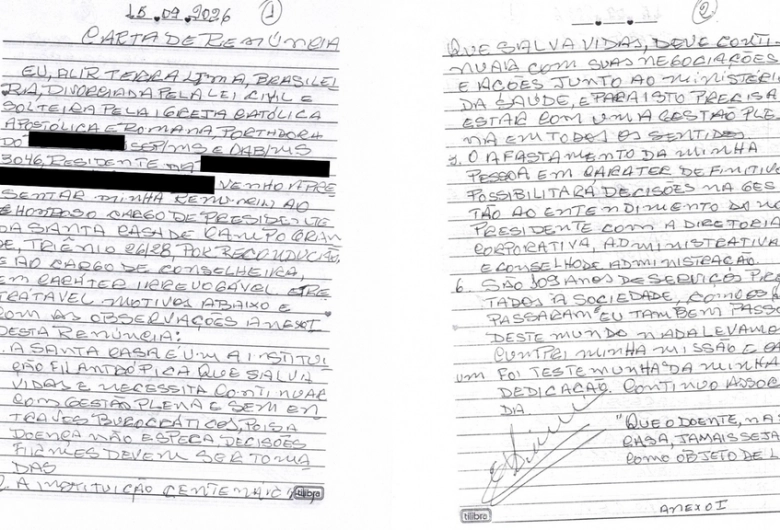 15.09.2026 1
CARTA DE RENÚNCIA
EU, ALIR TERRA LIMA, BRASILEI
RA, DIVORCIADA PELA LEI CIVIL E
SOLTEIRA PELA IGREJA CATÓLICA
APOSTÓLICA E ROMANA, PORTADORA
DO SEP/MS E OAB/MS
3046, RESIDENTE NA
VENHO APRE
SENTAR MINHA RENÚNCIA AO
HONROSO CARGO DE PRESIDENTE
DA SANTA CASA DE CAMPO GRAN
DE, TRIÊNIO 26/28, POR RECONDUÇÃO,
E AO CARGO DE CONSELHEIRA,
EM CARÁTER IRREVOGÁVEL E IRRE
TRATÁVEL, MOTIVOS ABAIXO E
COM AS OBSERVAÇÕES ANEXO I
DESTA RENÚNCIA:
. A SANTA CASA É UMA INSTITUI
ÇÃO FILANTRÓPICA QUE SALVA
VIDAS E NECESSITA CONTINUAR
COM GESTÃO PLENA E SEM EN
TRAVES BUROCRÁTICOS, POIS A
DOENÇA NÃO ESPERA DECISÕES
FIRMES DEVEM SER TOMA
DAS
. A INSTITUIÇÃO CENTENÁRIA
tilibra
2
QUE SALVA VIDAS, DEVE CONTI-
NUAR COM SUAS NEGOCIAÇÕES
E AÇÕES JUNTO AO MINISTÉRI
DA SAÚDE, E PARA ISTO PRECISA
ESTAR COM UMA GESTÃO PLE
NA EM TODOS OS SENTIDOS
5. O AFASTAMENTO DA MINHA
PESSOA EM CARÁTER DEFINITIV
POSSIBILITARÁ DECISÕES NA GES
TÃO AO ENTENDIMENTO DO NO
PRESIDENTE COM A DIRETORIA
CORPORATIVA, ADMINISTRATIVA
E CONSELHO DE ADMINISTRAÇÃO.
6. SÃO 109 ANOS DE SERVIÇOS PRE
TADOS À SOCIEDADE, COMO OS
PASSARAM EU TAMBÉM PASS
DESTE MUNDO NADA LEVAMO
CUMPRI MINHA MISSÃO E CA
UM FOI TESTEMUNHA DA MINHA
DEDICAÇÃO. CONTINUO ASSOC
DIA
"QUE O DOENTE, NA S
CASA, JAMAIS SEJA
COMO OBJETO DE L
ANEXO I
tilibra